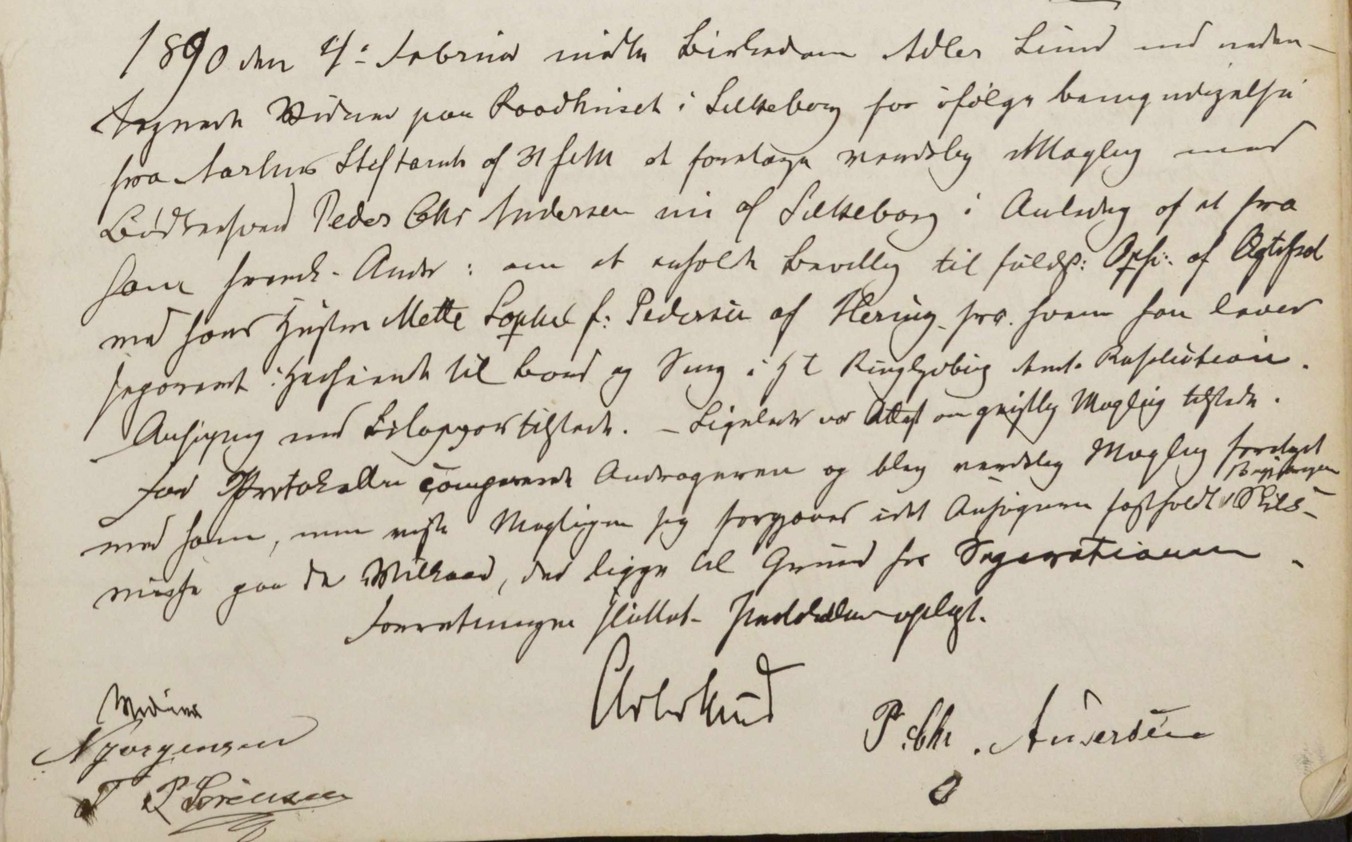 1890 den 4: Februar mødte Birkedom Adler Lund med neden-
tegnede Vidner paa Raadhuset i Silkeborg for ifølge bemyndigelse
fra Aarhus Stiftamt af 31 f. M. at foretage verdslig Mægling med
Bødkersvend Peder Chr Andersen nu af Silkeborg i Anledng af et fra
ham frems. Andr: om at erholde Bevillg til fulds: Oph: af Ægtesk
med hans Hustru Mette Sophie f: Pedersen af Herning fra hvem han lever
separeret i Henseende til Bord og Seng i H t Ringkjøbing Amts Resolution.
Ansøgng med Bilag var tilstede. – Ligeledes var Attest om geistlig Mægling tilstede.
For Protokollen comparerede Andrageren og blev verdslig Mæglig foretaget
med ham, men viste Mæglingen sig forgjæves idet Ansøgeren fastholdt Begjæringen Skils-
misse paa de Vilkaar, der ligge til Grund for Separationen
Forretningen sluttet. oplæst.
Adler Lund
P. Chr. Andersen
Vidner
N Jørgensen
P Sørensen